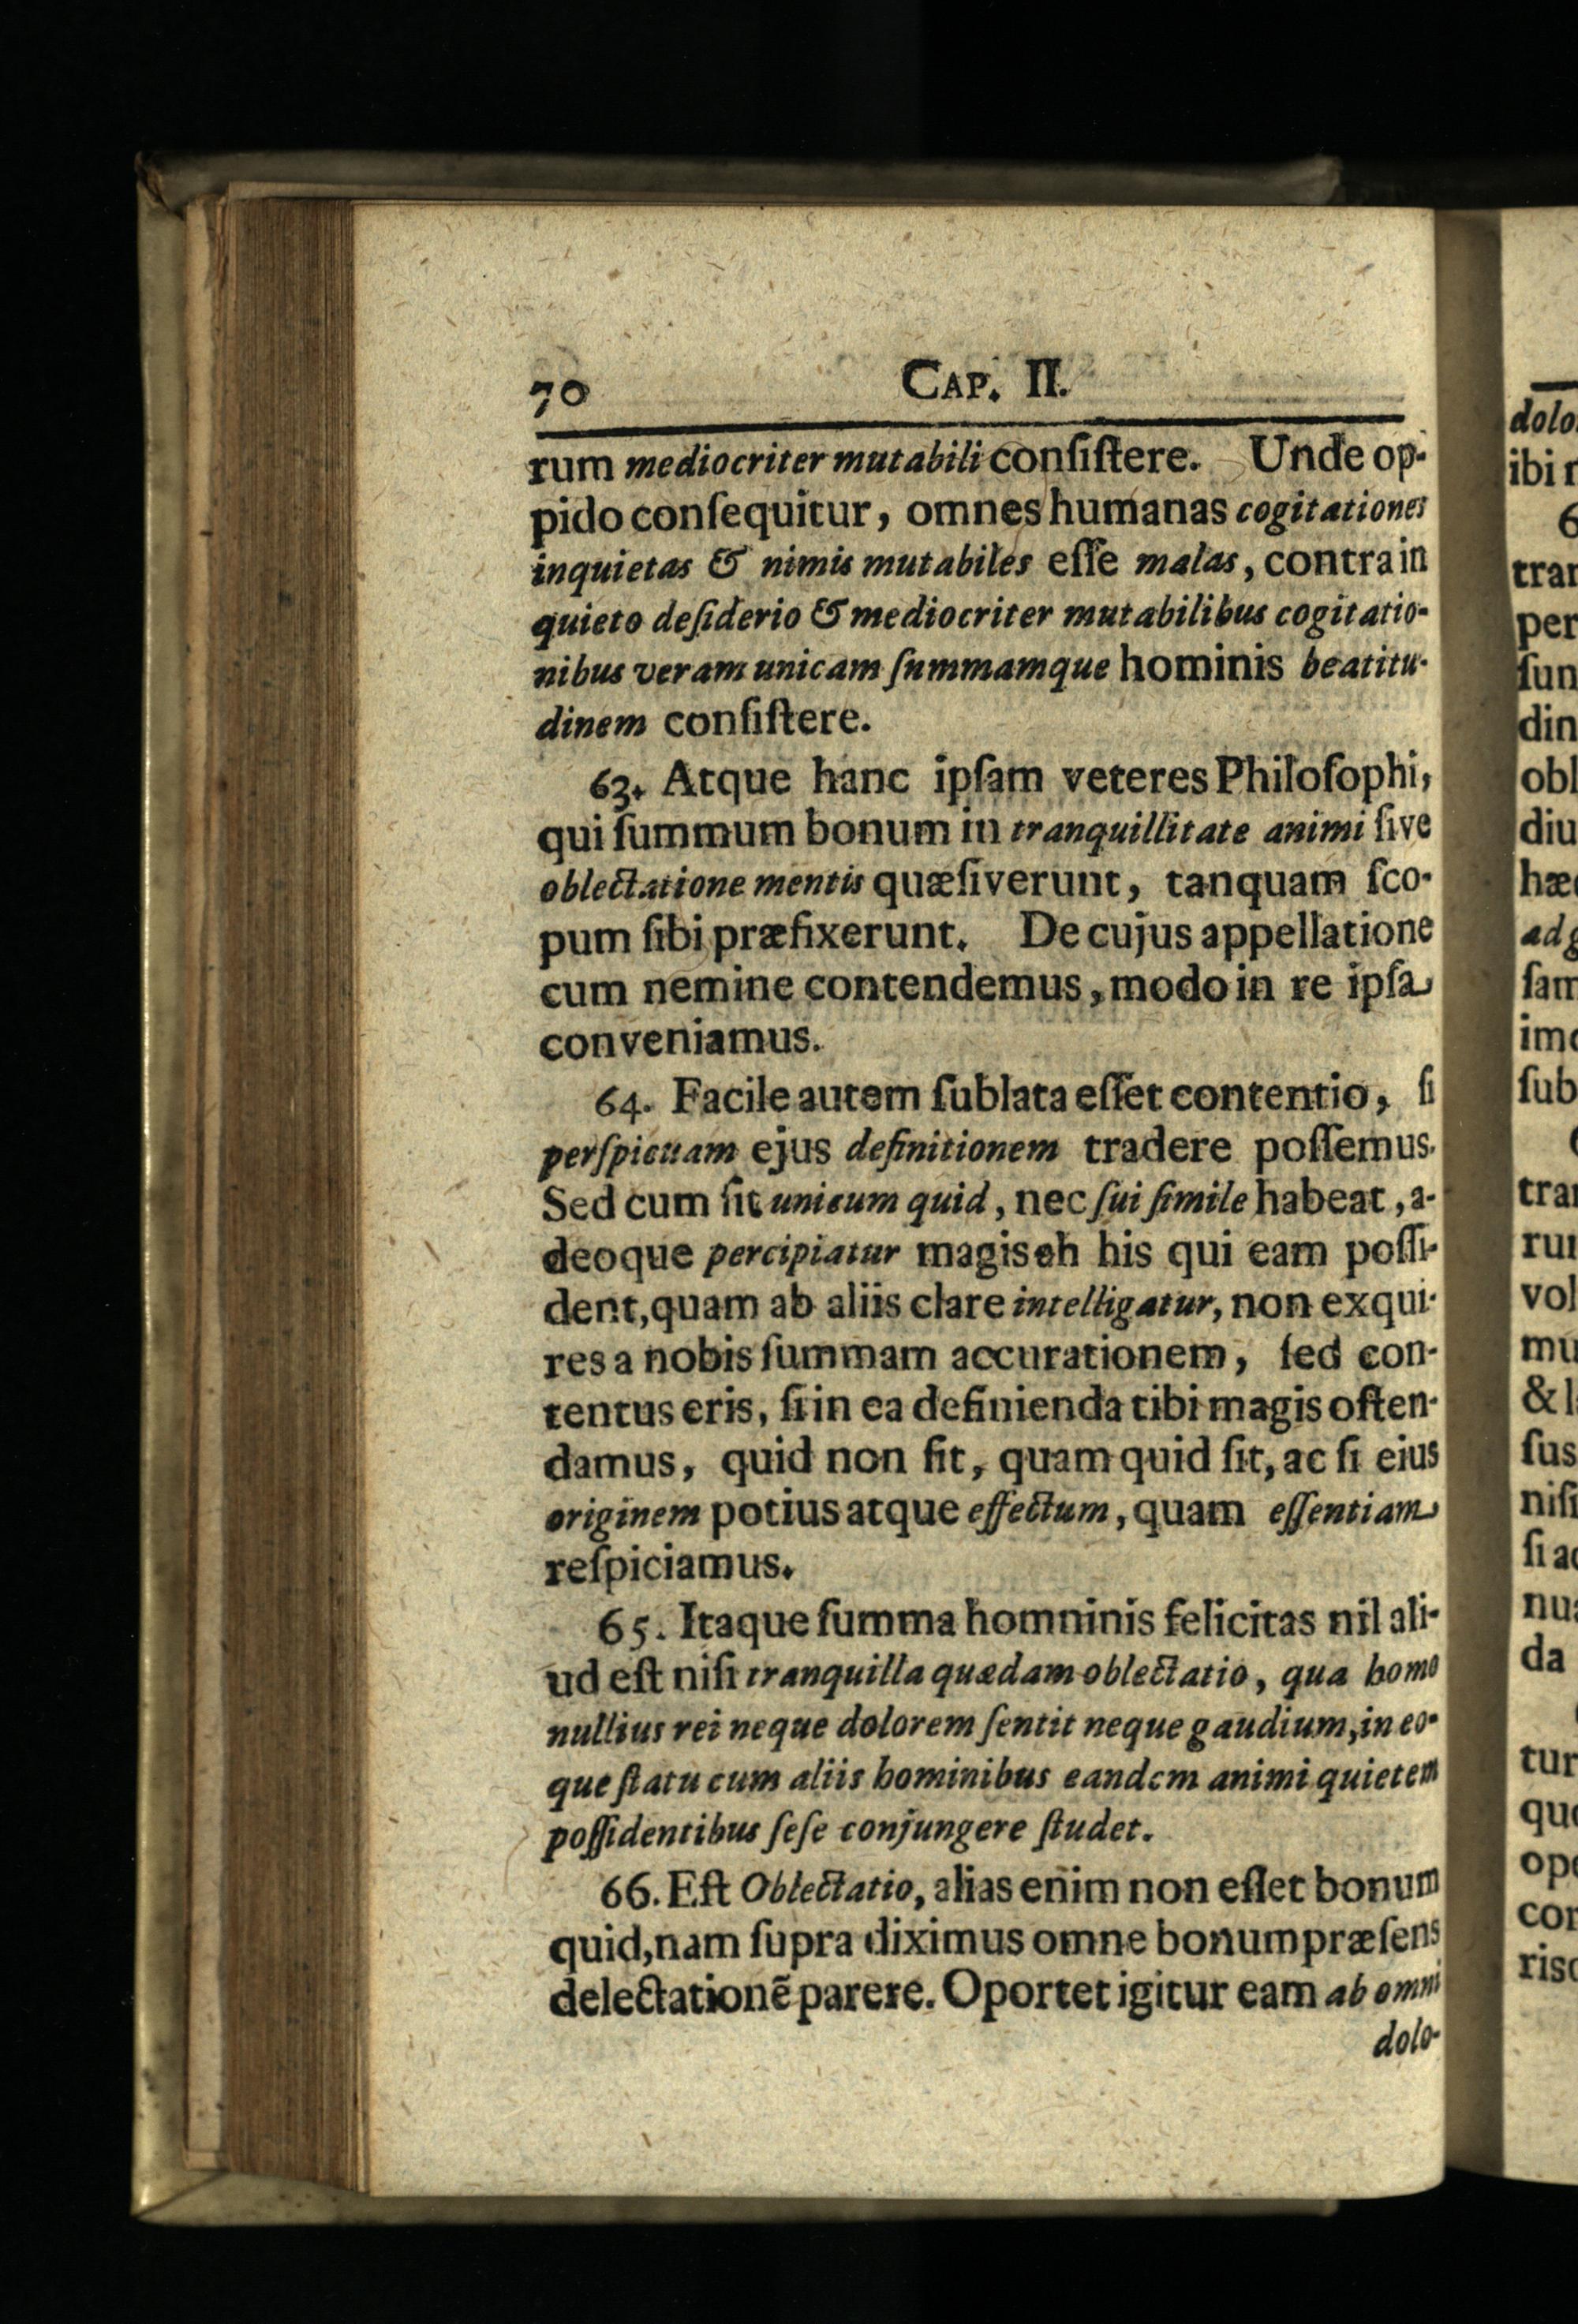 70 CAP. II.
rum mediocriter mutabili conſiſtere. Unde op-
pido conſequitur, omnes humanas cogitationes
inquietas & nimis mutabiles eſſe malas, contra in
quieto deſiderio & mediocriter mutabilibus cogitatio-
nibus veram unicam ſummamque hominis beatitu-
dinem conſiſtere.
63. Atque hanc ipſam veteres Philoſophi,
qui ſummum bonum in tranquillitate animi ſive
oblectatione mentis quæſiverunt, tanquam ſco-
pum ſibi præfixerunt. De cujus appellatione
cum nemine contendemus, modo in re ipſa
conveniamus.
64. Facile autem ſublata eſſet contentio, ſi
perſpicuam ejus definitionem tradere poſſemus.
Sed cum ſit unicum quid, nec ſui ſimile habeat, a-
deoque percipiatur magis ab his qui eam poſſi-
dent, quam ab aliis clare intelligatur, non exqui-
res a nobis ſummam accurationem, ſed con-
tentus eris, ſi in ea definienda tibi magis oſten-
damus, quid non ſit, quam quid ſit, ac ſi eius
originem potius atque effectum, quam eſſentiam
reſpiciamus.
65. Itaque ſumma homninis felicitas nil ali-
ud eſt niſi tranquilla quædam oblectatio, qua homo
nullius rei neque dolorem ſentit neque gaudium, in eo-
que ſtatu cum aliis hominibus eandem animi quietem
poſſidentibus ſeſe conjungere ſtudet.
66. Eſt Oblectatio, alias enim non eſſet bonum
quid, nam ſupra diximus omne bonum præſens
delectationẽ parere. Oportet igitur eam ab omni
dolo-